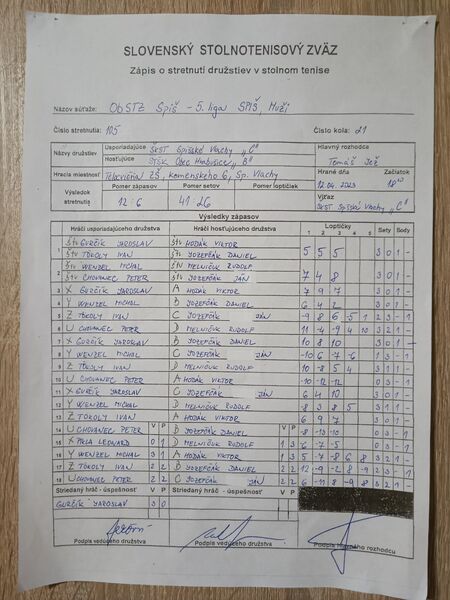 SLOVENSKÝ STOLNOTENISOVÝ ZVÄZ
Zápis o stretnutí družstiev v stolnom tenise
Názov súťaže: ObSTZ Spiš - 5. liga SPIŠ, MUŽI
Číslo stretnutia: 105 Číslo kola: 21
Názov družstiev Usporiadajúce ŠKST Spišské Vlachy "C" Hlavný rozhodca
Hosťujúce STŠK Obec Hrabušice "B" Tomáš Jež
Hracia miestnosť Telocvičňa ZŠ, Komenského 6, Sp. Vlachy Hrané dňa 12.04.2023 Začiatok 18
Výsledok stretnutia Pomer zápasov Pomer setov Pomer loptičiek Víťaz
12:6 41:26 ŠKST Spišské Vlachy "C"
Výsledky zápasov
Hráči usporiadajúceho družstva Hráči hosťujúceho družstva Loptičky Sety Body
1 2 3 4 5
1 Štv GURČÍK JAROSLAV Štv HODÁK VIKTOR 5 5 5 3 0 1 -
Štv TÖKÖLY IVAN Štv JOZEFČÁK DANIEL
2 Štv WENZEL MICHAL Štv MELNIČUK RUDOLF 7 4 8 3 0 1 -
Štv CHOVANEC PETER Štv JOZEFČÁK JÁN
3 X GURČÍK JAROSLAV A HODÁK VIKTOR 7 9 7 3 0 1 -
4 Y WENZEL MICHAL B JOZEFČÁK DANIEL 6 4 2 3 0 1 -
5 Z TÖKÖLY IVAN C JOZEFČÁK JÁN -9 8 6 -5 1 3 2 1 -
6 U CHOVANEC PETER D MELNIČUK RUDOLF 11 -4 -9 4 10 3 2 1 -
7 X GURČÍK JAROSLAV B JOZEFČÁK DANIEL 10 8 10 3 0 1 -
8 Y WENZEL MICHAL C JOZEFČÁK JÁN -10 6 -7 -6 1 3 - 1
9 Z TÖKÖLY IVAN D MELNIČUK RUDOLF 10 -8 5 4 3 1 1 -
10 U CHOVANEC PETER A HODÁK VIKTOR -10 -12 -12 0 3 - 1
11 X GURČÍK JAROSLAV C JOZEFČÁK JÁN 6 4 10 3 0 1 -
12 Y WENZEL MICHAL D MELNIČUK RUDOLF -8 3 8 5 3 1 1 -
13 Z TÖKÖLY IVAN A HODÁK VIKTOR 6 9 7 3 0 1 -
14 U CHOVANEC PETER V P B JOZEFČÁK DANIEL V P
15 X PRLA LEONARD 0 1 D MELNIČUK RUDOLF 1 3
16 Y WENZEL MICHAL 3 1 A HODÁK VIKTOR
17 Z TÖKÖLY IVAN 2 2 B JOZEFČÁK DANIEL 2 2
18 U CHOVANEC PETER 2 2 C JOZEFČÁK JÁN 2 2
Striedaný hráč - úspešnosť V P Striedaný hráč - úspešnosť V P
GURČÍK JAROSLAV 3 0
Podpis vedúceho družstva Podpis vedúceho družstva Podpis hlavného rozhodcu